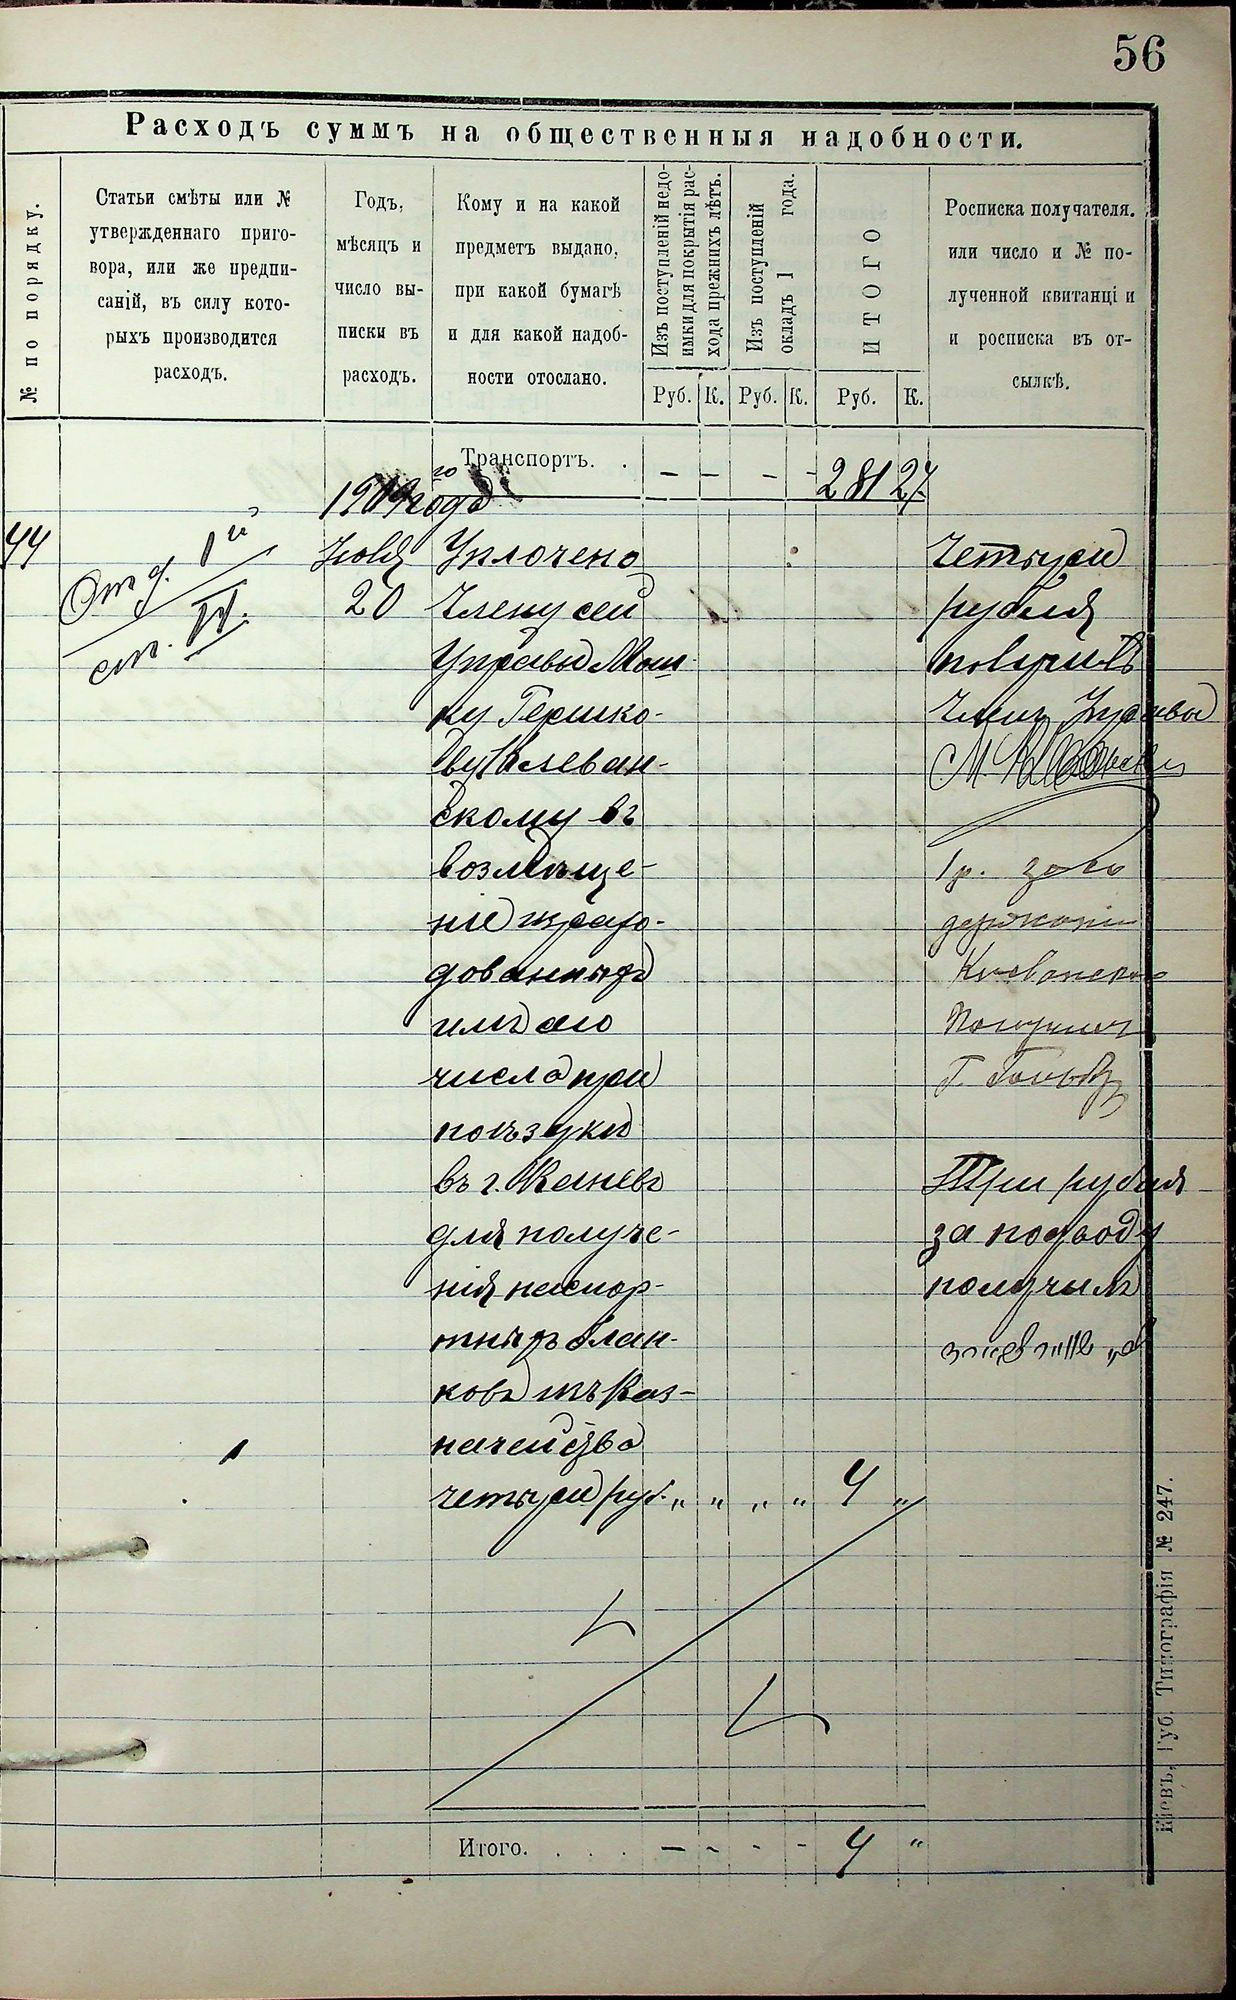 56
Расходъ суммъ на общественныя надобности.
№ по порядку.
Статьи смѣты или №
утвержденнаго приго-
вора, или же предпи-
саній, въ силу кото-
рыхъ производится
расходъ.
Годъ,
мѣсяцъ и
число вы-
писки въ
расходъ.
Кому и на какой
предметъ выдано,
при какой бумагѣ
и для какой надоб-
ности отослано.
Изъ поступленій недо-
имки для покрытія рас-
хода прежнихъ лѣтъ.
Изъ поступленій
окладъ 1 года.
ИТОГО
Росписка получателя.
или число и № по-
лученной квитанціи
и росписка въ от-
сылкѣ.
Руб. К. Руб. К. Руб. К.
Транспортъ. . – – – – 281 27
1909 го года
44
Отд. 1й
ст. IV.
Іюля
20
Уплочено
Члену сей
Управы Мош-
ку Гершко-
ву Клеван-
скому въ
возмѣще-
ніе израсхо-
дованныхъ
имъ сего
числа при
поѣздкѣ
въ г. Каневъ
для получе-
нія паспор-
тныхъ блан-
ковъ изъ Каз-
начейства
четыре руб. „ „ „ „ 4 „
Четыре
рубля
получилъ
Членъ Управы
М. Клеванскій
1 р. за со
держаніе
Клеванско
Получилъ
Три рубля
за подводу
получилъ
Итого. . . . . – – – – 4 „
Кіевъ, Губ. Типографія № 247.